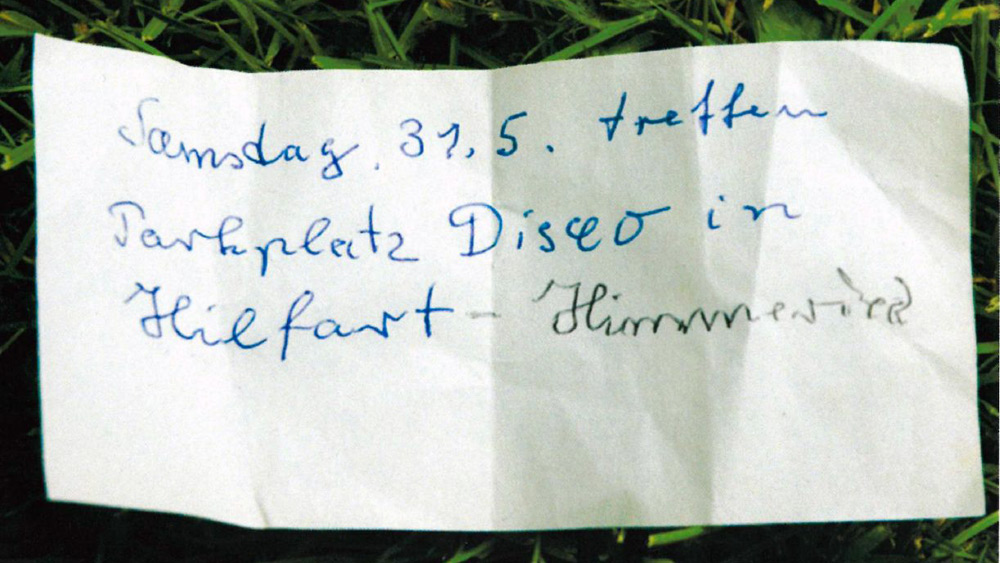 Samstag. 31.5. treffen
Parkplatz Disco in
Hilfart - Himmerich